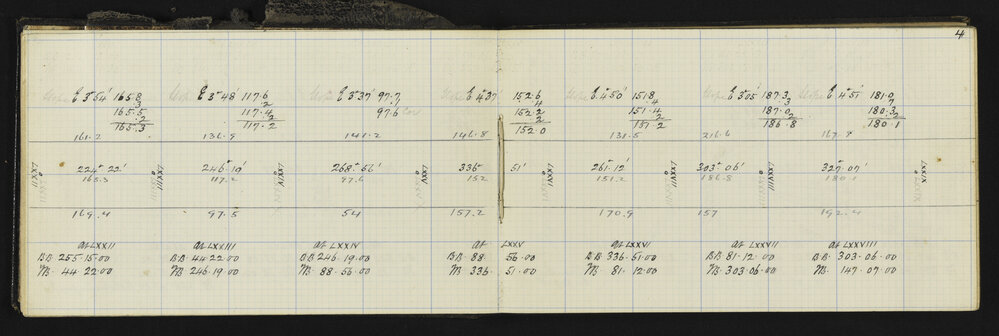 4
Slope E 3° 54' 165.8 Slope E 3° 48' 117.6 Slope E 3° 37' 97.7 Slope E 4° 37' 152.6 Slope E 4° 50' 151.8 Slope E 3° 05' 187.3 Slope E 4° 51' 181.0
.3 .2 .1 .4 .4 .3 .7
165.5 117.4 97.6 Cor 152.2 151.4 187.0 180.3
.2 .2 .2 .2 .2 .2
165.3 117.2 152.0 151.2 186.8 180.1
161.2 136.9 141.2 146.8 131.5 216.6 167.8
LXXII 224° 22' LXXIII 246° 19' LXXIV 268° 56' LXXV 336° 51' LXXVI 261° 12' LXXVII 303° 06' LXXVIII 327° 07' LXXIX
165.3 117.2 97.6 152 151.2 186.8 180.1
169.4 97.5 54 157.2 170.9 157 192.4
at LXXII at LXXIII at LXXIV at LXXV at LXXVI at LXXVII at LXXVIII
BB 255.15.00 BB 44.22.00 BB 246.19.00 BB 88.56.00 BB 336.51.00 BB 81.12.00 BB 303.06.00
M. 44.22.00 M. 246.19.00 M. 88.56.00 M. 336.51.00 M. 81.12.00 M. 303.06.00 M. 147.07.00